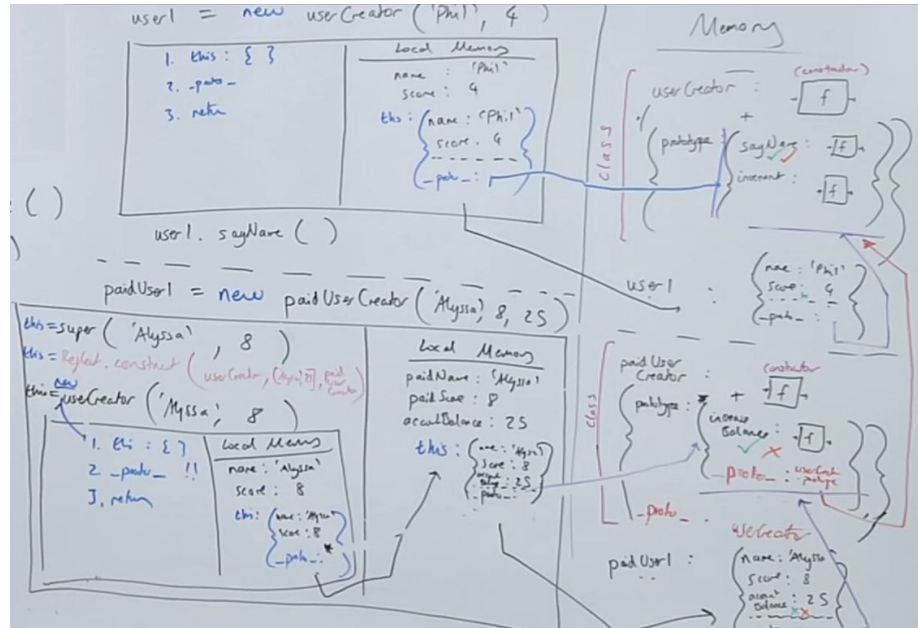 user1 = new userCreator ('Phil', 4)
1. this : { }
2. _proto_
3. return
Local Memory
name : 'Phil'
score : 4
this : { name : 'Phil'
score : 4
_proto_ : }
( )
)
user1. sayName ( )
paidUser1 = new paidUserCreator ('Alyssa', 8, 25)
this = super ( 'Alyssa' , 8 )
this = Reflect. construct ( userCreator,
new
this = userCreator ('Alyssa', 8)
1. this : { }
2 _proto_ !!
3, return
Local Memory
name : 'Alyssa'
score : 8
this : { name : 'Alyssa'
score : 8 *
_proto_ : }
Local Memory
paidName : 'Alyssa'
paidScore : 8
accountBalance : 25
this : { name : 'Alyssa'
score : 8
25
_proto_ : }
Memory
Class
userCreator :
(constructor)
f
+
{ prototype : { sayName : f
increment : f } }
user1 : { name : 'Phil'
score : 4
_proto_ : }
Class
paidUser
Creator :
constructor
+ f
{ prototype : * { increase
Balance : f
_proto_ : userCreator
prototype } }
_proto_ :
userCreator
paidUser1 : { name : 'Alyssa'
score : 8
account
Balance : 25